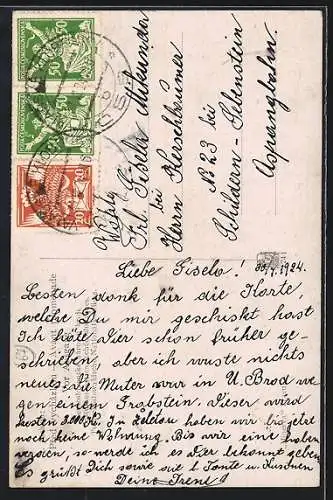 50 50
50 50
20 20
Wohlg.
Frl. Gisela
bei
Herrn Kerschbaumer
No 23 bei
Schildern-Sebenstein
Aspangbahn.
Liebe Gisela! 30./4. 1924.
Besten dank für die Karte,
welche Du mir geschickt hast
Ich häte Dier schon früher ge-
schrieben, aber ich wuste nichts
neues. Die Muter war in U. Brod we-
gen einem Grabstein. Dieser wird
kosten 3.000 Kč. In haben wir bis jetz
noch keine Wohnung. Bis wir eine haben
werden, so werde ich es Dier bekannt geben
Es grüßt Dich sowie auch Tante u. Kusinen
Deine